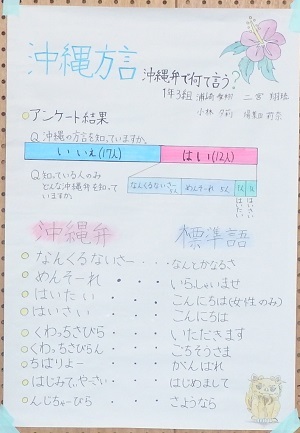 沖縄方言
沖縄弁で何て言う?
1年3組
二宮
小林
アンケート結果
Q 沖縄の方言を知っていますか。
いいえ(17人) はい(12人)
Q 知っている人のみ
どんな沖縄弁を知って
いますか。
なんくるないさー めんそーれ 5人 1人 1人
はいたい はいさい
沖縄弁 標準語
なんくるないさー・・・なんとかなるさ
めんそーれ・・・いらっしゃいませ
はいたい・・・こんにちは(女性のみ)
はいさい・・・こんにちは
くわっちさびら・・・いただきます
くわっちさびらん・・・ごちそうさま
ちばりよー・・・がんばれ
はじみてぃやーさい・・・はじめまして
んじちゃーびら・・・さようなら